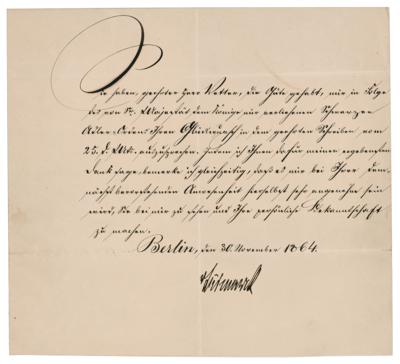 Sie haben, geehrter Herr Vetter, die Güte gehabt, mir in Folge
des von Sr. Majestät dem Könige mir verliehenen Schwarzen
Adler-Ordens Ihren Glückwunsch in dem geehrten Schreiben vom
25. d. Mts. auszusprechen. Indem ich Ihnen dafür meinen ergebensten
Dank sage, bemerke ich gleichzeitig, daß es mir bei Ihrer dem-
nächst bevorstehenden Anwesenheit hierselbst sehr angenehm sein
wird, Sie bei mir zu sehen und Ihre persönliche Bekanntschaft
zu machen.
Berlin, den 30. November 1864.
v Bismarck